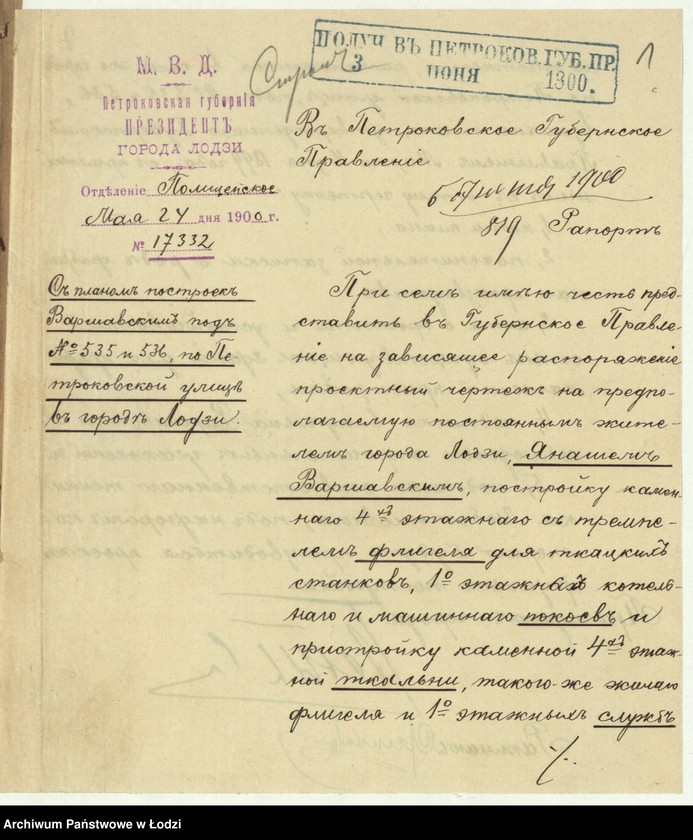 М. В. Д.
Петроковская губернія
ПРЕЗИДЕНТЪ
ГОРОДА ЛОДЗИ
Отдѣленіе Полицейское
Мая 24 дня 1900 г.
№ 17332
Съ планомъ построекъ
Варшавскимъ подъ
№ 535 и 536, по Пе
троковской улицѣ
въ городѣ Лодзи.
ПОЛУЧ ВЪ ПЕТРОКОВ. ГУБ. ПР.
3 ІЮНЯ 1900.
1
Въ Петроковское Губернское
Правленіе
1900
819 Рапортъ
При семъ имѣю честь пред-
ставить въ Губернское Правле-
ніе на зависящее распоряженіе
проектный чертежъ на предпо-
лагаемую постояннымъ жите-
лемъ города Лодзи, Янашемъ
Варшавскимъ, постройку камен-
наго 4хъ этажнаго съ тремпе-
лемъ флигеля для ткацкихъ
станковъ, 1о этажныхъ котель-
наго и машиннаго покоевъ и
пристройку каменной 4хъ этаж-
ной ткальни, такого-же жилаго
флигеля и 1о этажныхъ службъ
./.
Archiwum Państwowe w Łodzi